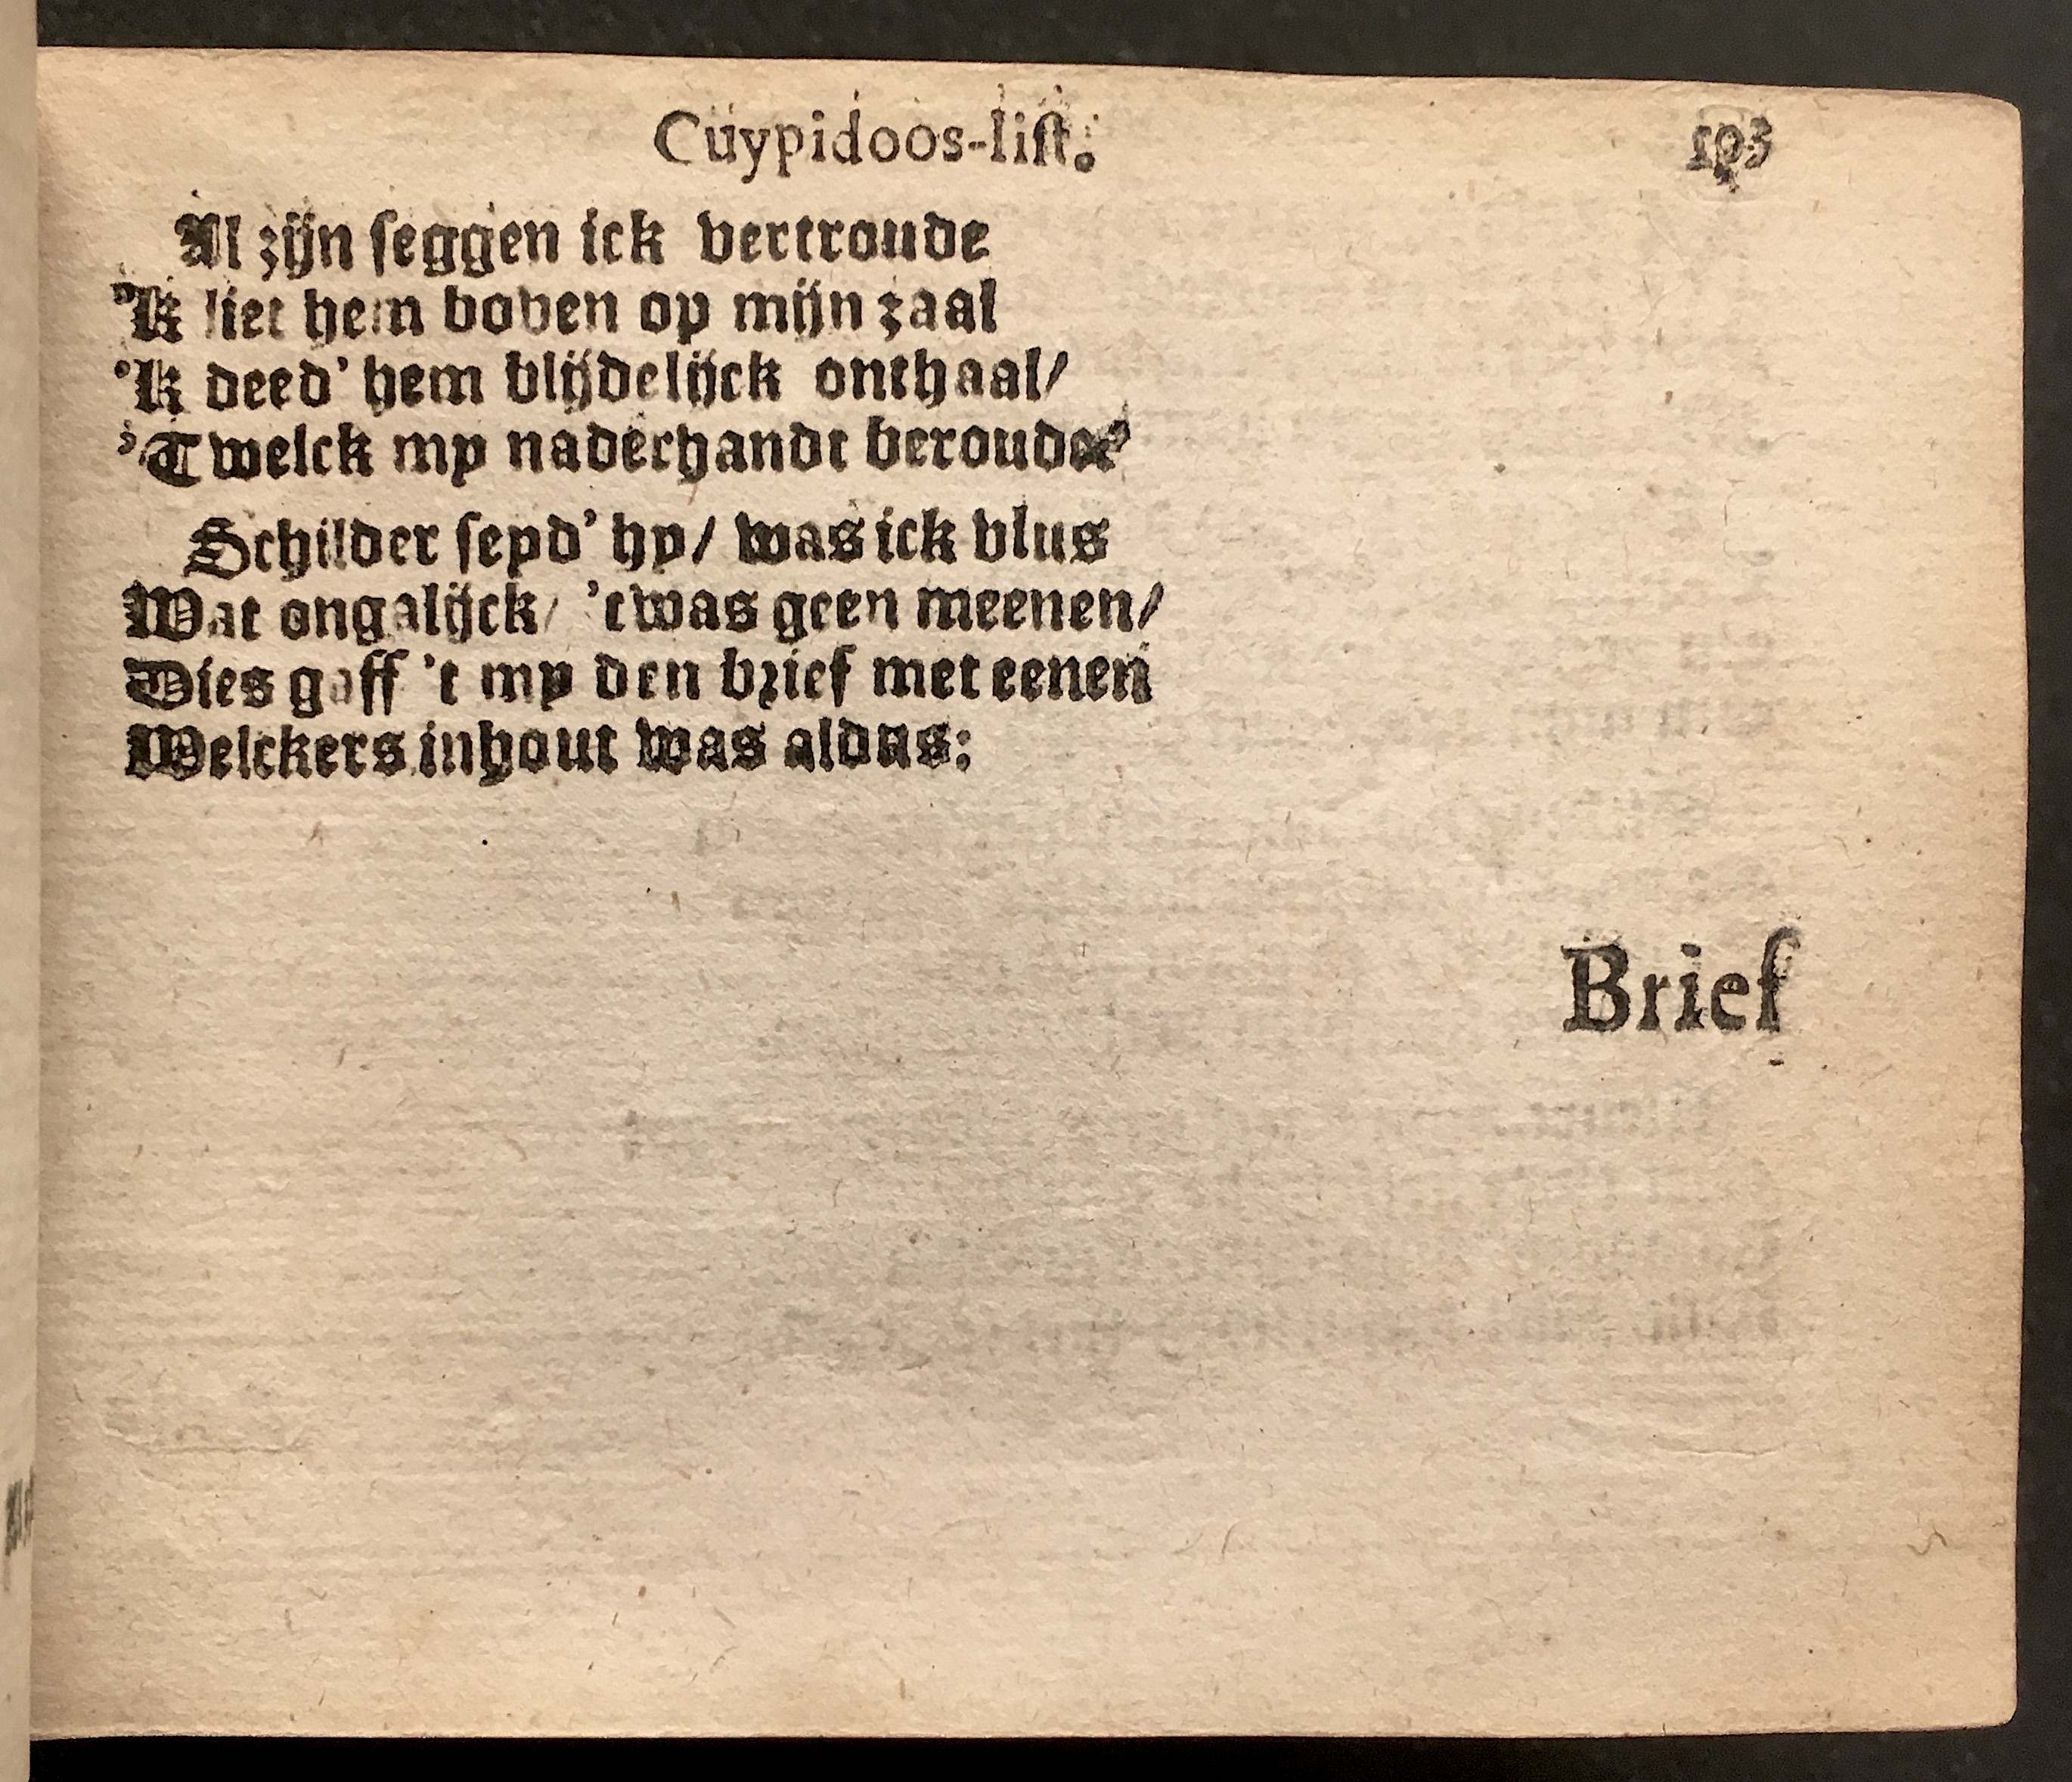 Cuypidoos-liſt.
103
Al zijn ſeggen ick vertroude
'Ik liet hem boven op mijn zaal
'Ik deed' hem blijdelijck onthaal/
'Twelck my naderhandt beroude
Schilder ſeyd' hy/ was ick vlus
Wat ongalijck/ 'twas geen meenen/
Dies gaff 't my den brief met eenen
Welckers inhout was aldus:
Brief